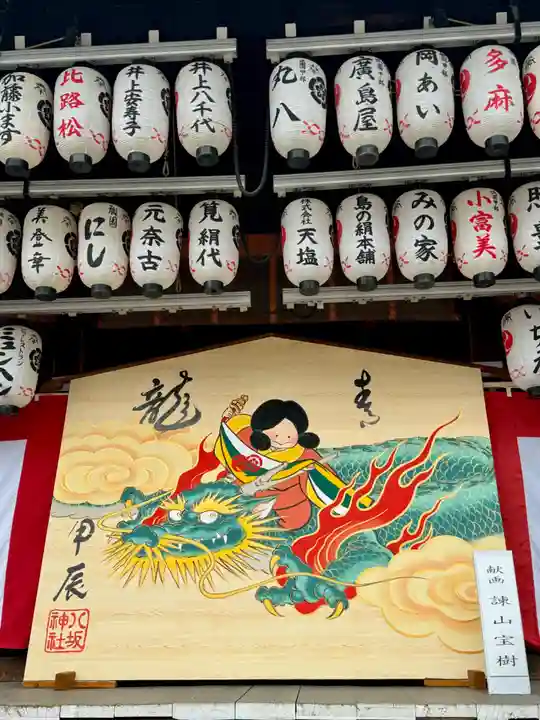 加藤小ます
比路松
井上安寿子
井上八千代
丸八
廣島屋
岡あい
多麻
美登幸
にし
元奈古
筧絹代
株式会社
天塩
島の絹本舗
みの家
小富美
青
龍
甲辰
八坂
神社
献画
諫山宝樹